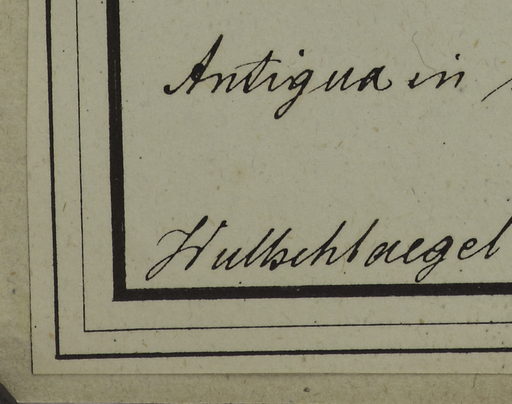 Antigua in
Wullschlaegel